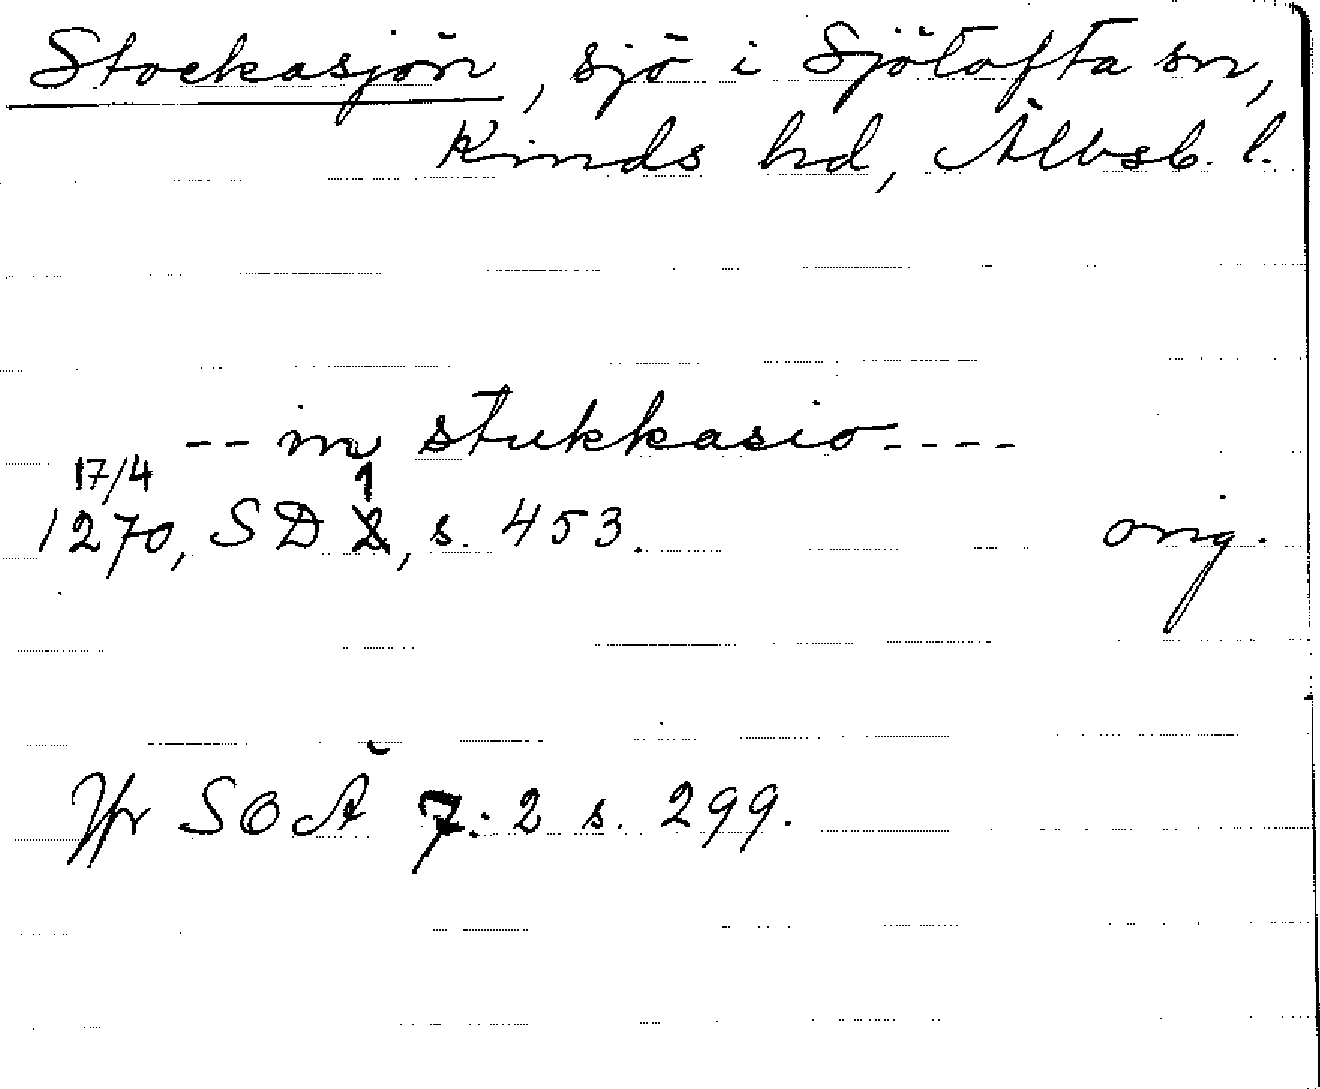 Stockasjön, sjö i Sjötofta sn,
Kinds hd, Älvsb. l.
-- in stukkasio ----
17/4 1
1270, SD 2, s. 453. orig.
Jfr SOÄ 7:2 s. 299.